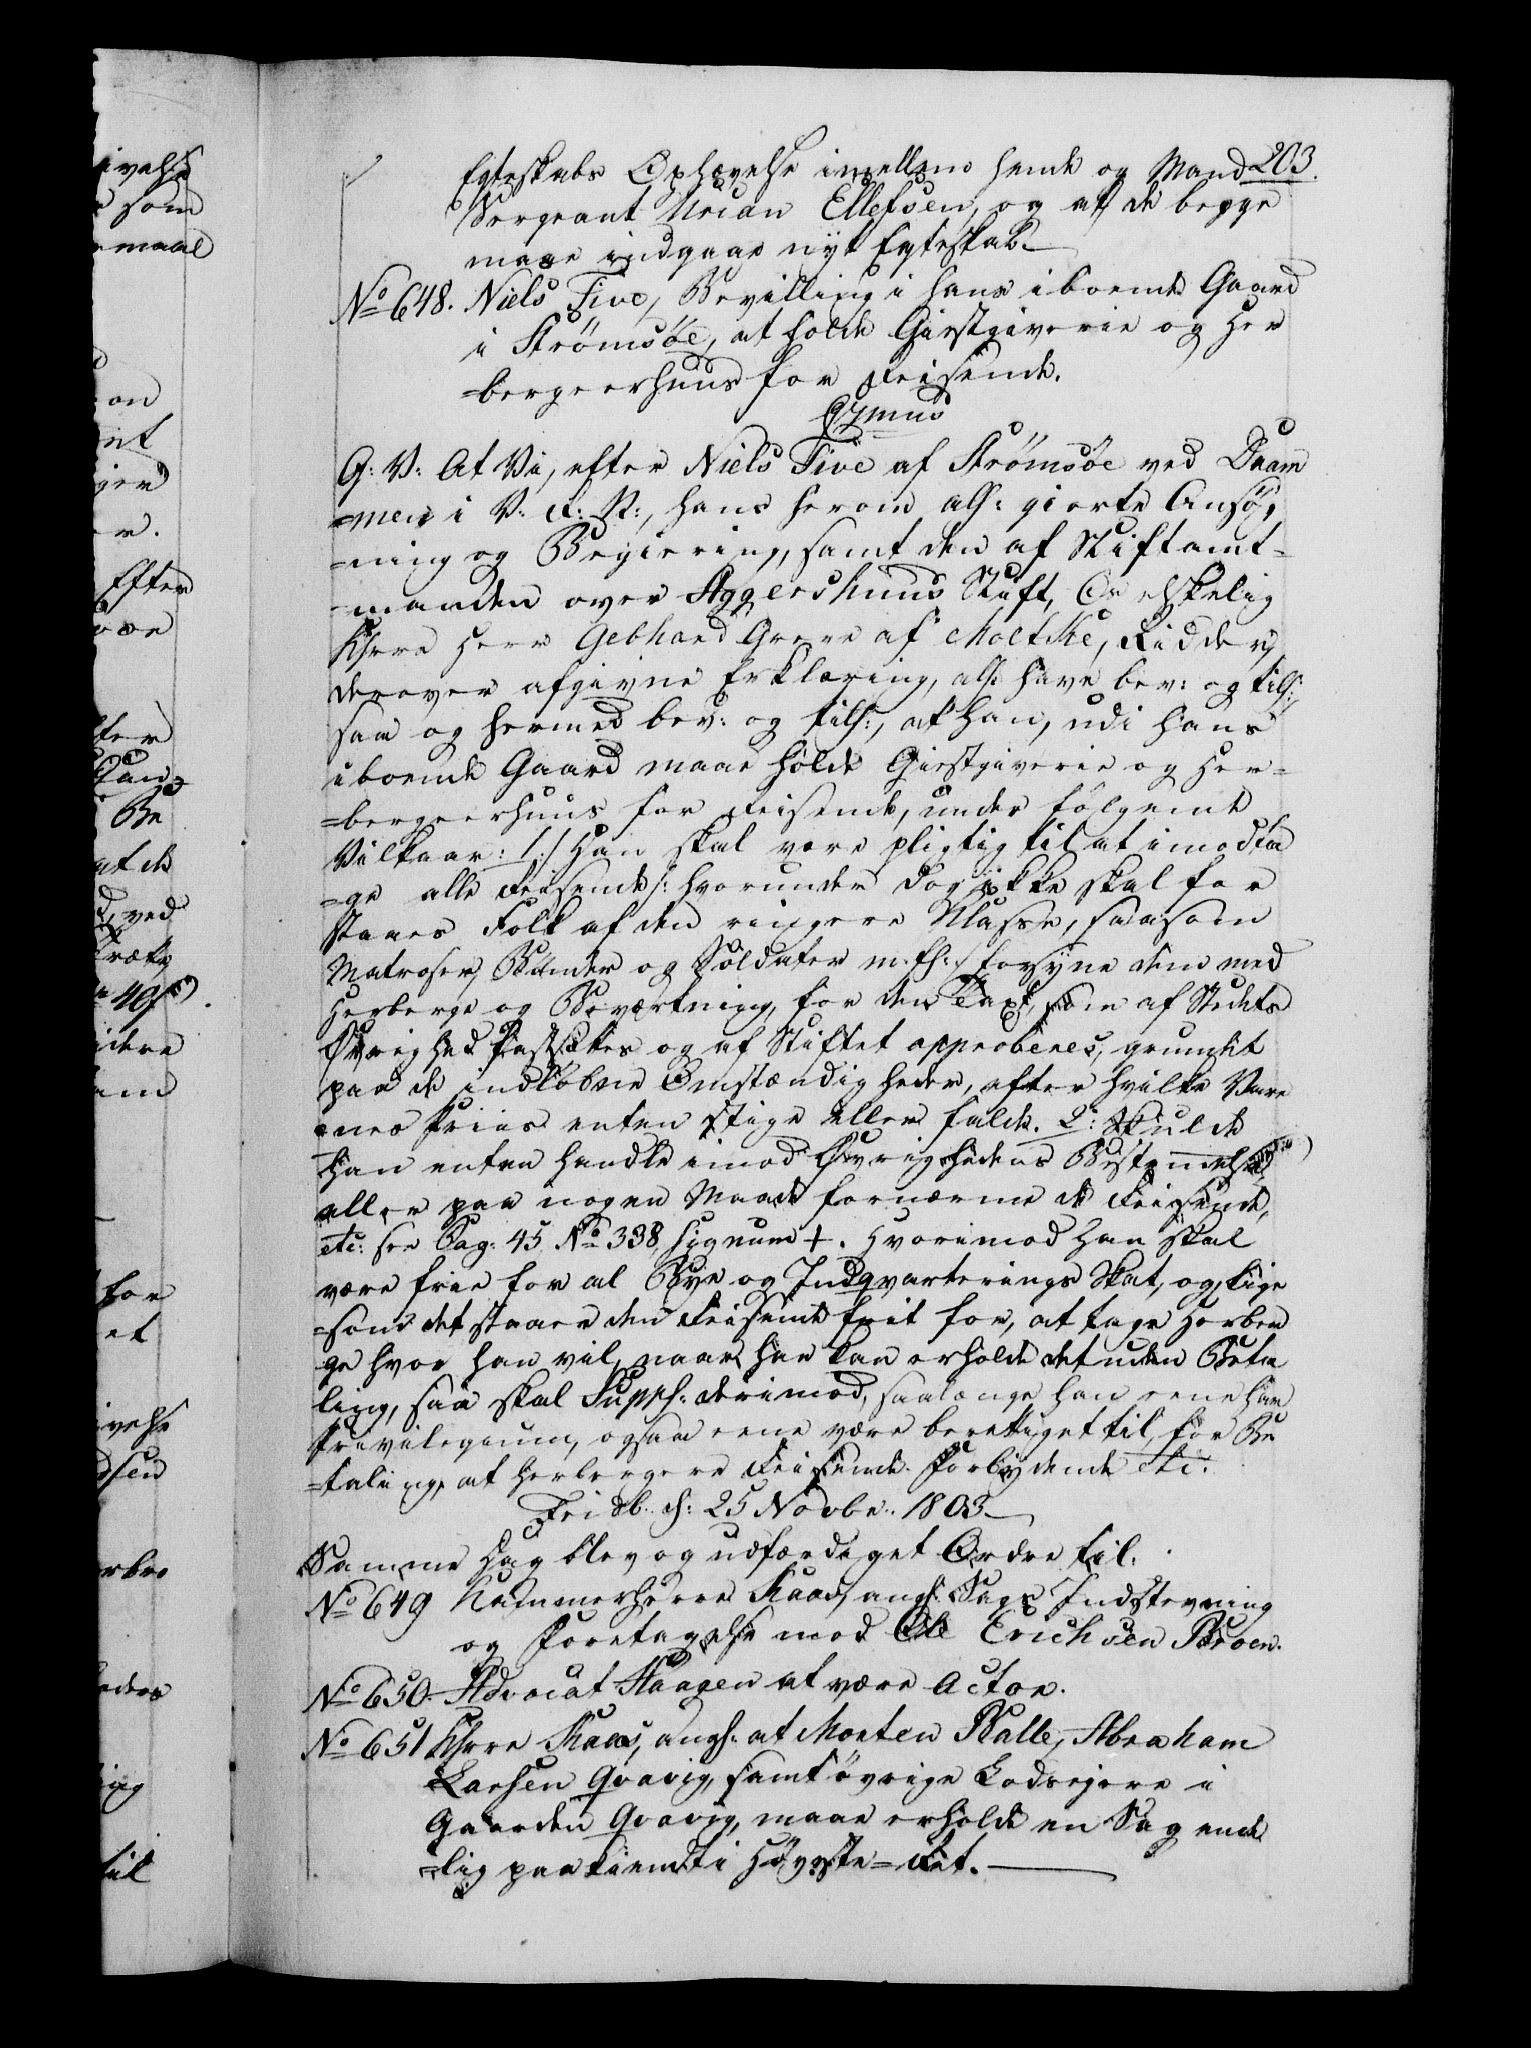 203.
Egteskabs Ophævelse imellem hende og Mand
Sergeant Urian Ellefsen, og at de begge
maae indgaae nÿt Egteskab.
No 648. Niels Five, Bevilling i hans iboende Gaard
i Strømsöe, at holde Giestgiverie og Her
=bergeerhuus for Reisende.
G: V: At Vi, efter Niels Five af Strømsöe ved Dram
=men i V: R: N:, hans herom alt: giorte Ansög
=ning og Begiering, samt den af Stiftamt=
=manden over Aggershuus Stift, Os elskelig
Hrre Herr Gebhard Greve af Moltke, Ridder,
derover afgivne Erklæring, alt: have bev: og tilt:,
saa og hermed bev: og tilt:, at han, udi hans
iboende Gaard maae holde Giestgiverie og Her=
=bergeerhuus for Reisende, under følgende
Vilkaar: 1:/ Han skal være pligtig til at imodta
=ge alle Reisende /: hvorunder dog ikke skal for
staaes Folk af den ringere Klasse, saasom
Matroser, Bönder og Soldater m. fl: :/ forsÿne dem med
Herberge og Beværtning, for den Taxt, som af Stedets
Øvrighed fastsættes og af Stiftet approberes, grundet
paa de indløbne Omstændigheder, efter hvilke Vare
=nes Priis enten stige eller falde. 2: Skulde
han enten handle imod Øvrighedens Bestemmelse,
eller paa nogen Maade fornærme de Reisende,
etc: see Pag: 45 No 338, signum +. Hvorimod han skal
være frie for al Bÿe og Indqvarterings Skat, og lige
=som det staaer den Reisende frit for, at tage Herber
ge hvor han vil, naar han kan erholde det uden Beta
ling, saa skal Suppl: derimod, saalænge han eene har
Privilegium, ogsaa eene være berettiget til, for Be
=taling, at herbergere Reisende. Forbÿdende etc:
Fridb. d: 25 Novbr: 1803
Samme Dag blev og udfærdiget Ordre til.
No 649 Kammerherre Kaas, angl: Sags Indstevning
og Foretagelse mod Ole Erichsen Broen.
No 650. Advocat Haagen at være Actor.
No 651 Hrre Kaas, angl: at Morten Balle, Abraham
Larsen Qvavig, samt övrige Lodsejere i
Gaarden Qvavig, maae erholde en Sag ende
=lig paakiendt i Höyeste=Ret.